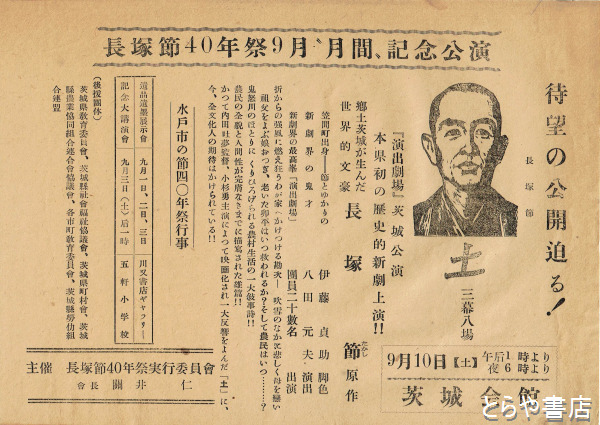 長塚節40年祭9月〝月間〟記念公演
待望の公開迫る!
長塚節
土
三幕八場
9月10日【土】午后1時より
夜6時より
茨城会館
『演出劇場』茨城公演
本県初の歴史的新劇上演!!
郷土茨城が生んだ
世界的文豪 長塚節原作
たかし
笠間町出身――節とゆかりの 伊藤貞助脚色
新劇界の鬼才 八田元夫演出
新劇界の最高峯『演出劇場』 團員二十數名 出演
折からの强風に燃え狂うわが家へかけつける勘次―吹雪のなかに悲しく母を慕い
祖父をよぶ娘おつぎ、老いた卯平はいつ救われるか?そして農民はいつ………?
鬼怒川のほとりにくりひろげられる農村生活の一大敍事詩!!
農民の全貌と人間性が完膚なきまでに描寫された雄篇!!
かつて内田吐夢監督、小杉勇主演によつて映画化され一大反響をよんだ『土』に、
今、全文化人の期待はかけられている!!
水戸市の節四〇年祭行事
遺品遺墨展示會 九月一日、二日、三日 川又書店ギャラリー
記念大講演會 九月三日(土)后一時 五軒小学校
(後援團体)
茨城県教育委員會、茨城縣社會福祉協議會、茨城県町村會、茨城
縣農業協同組合連合會協議會、各市町教育委員會、茨城縣勞仂組
合連盟
主催 長塚節40年祭実行委員會
會長 關井仁
とらや書店